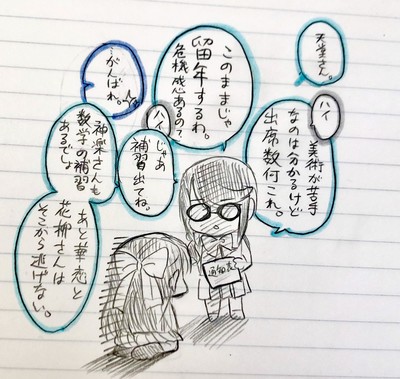 天堂さん。
ハイ
美術が苦手
なのは分かるけど
出席数何これ。
このままじゃ
留年するわ。
危機感あるの?
ハイ
じゃあ
補習出てね。
…がんばれ。
神楽さんも
数学の補習
あるでしょ
あと華恋と
花柳さんは
そこから逃げない。
通知表